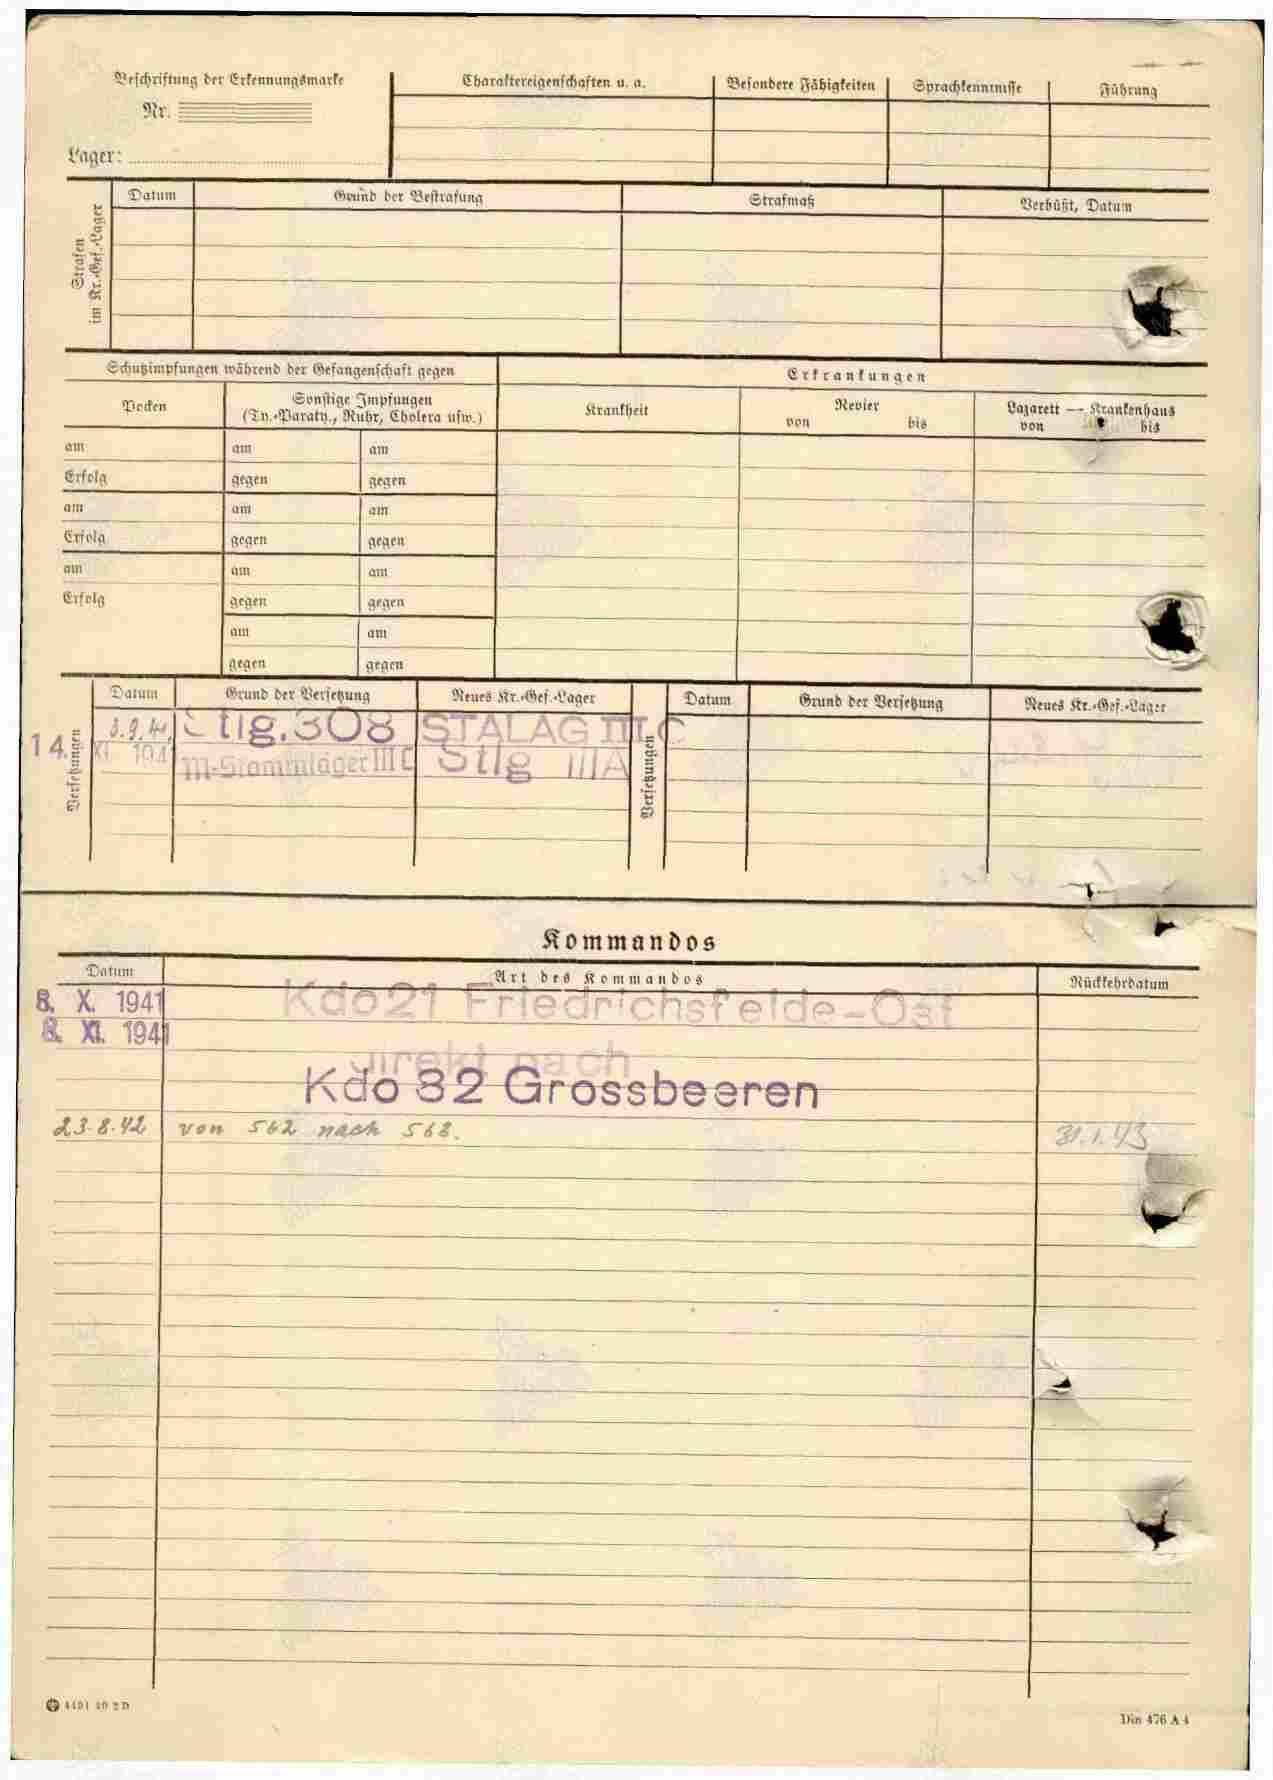 Beschriftung der Erkennungsmarke
Nr.
Lager:
Charaktereigenschaften u. a.
Besondere Fähigkeiten
Sprachkenntnisse
Führung
Strafen
im Kr.-Gef.-Lager
Datum
Grund der Bestrafung
Strafmaß
Verbüßt, Datum
Schutzimpfungen während der Gefangenschaft gegen
Erkrankungen
Pocken
Sonstige Impfungen
(Ty.-Paraty., Ruhr, Cholera usw.)
Krankheit
Revier
von bis
Lazarett — Krankenhaus
von bis
am am am
Erfolg gegen gegen
am am am
Erfolg gegen gegen
am am am
Erfolg gegen gegen
am am
gegen gegen
Versetzungen
Datum Grund der Versetzung Neues Kr.-Gef.-Lager
Versetzungen
Datum Grund der Versetzung Neues Kr.-Gef.-Lager
3.9.41. Stlg. 308 STALAG III C
14. XI. 194 M-Stammlager III C Stlg III A
Kommandos
Datum Art des Kommandos Rückkehrdatum
8. X. 1941 Kdo 21 Friedrichsfelde-Ost
8. XI. 1941
direkt nach
Kdo 32 Grossbeeren
23.8.42 von 562 nach 568. 31.1.43
4401 40 2 D
Din 476 A 4